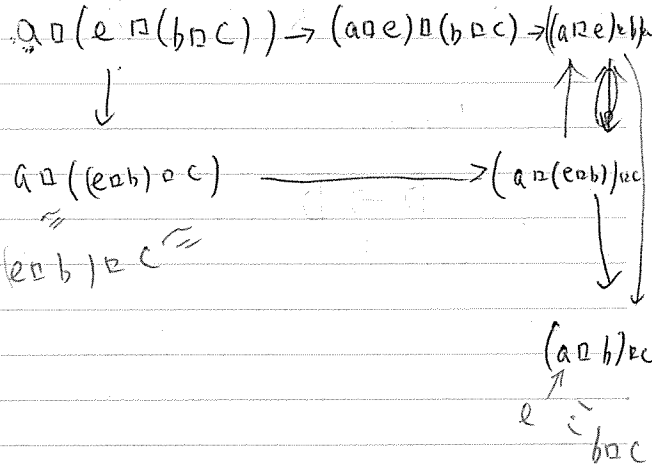 a□(e□(b□c)) → (a□e)□(b□c) → ((a□e)□b)□c
↓ ↑ ↓
a□((e□b)□c) → (a□(e□b))□c
(e□b)□c
(a□b)□c
e
b□c